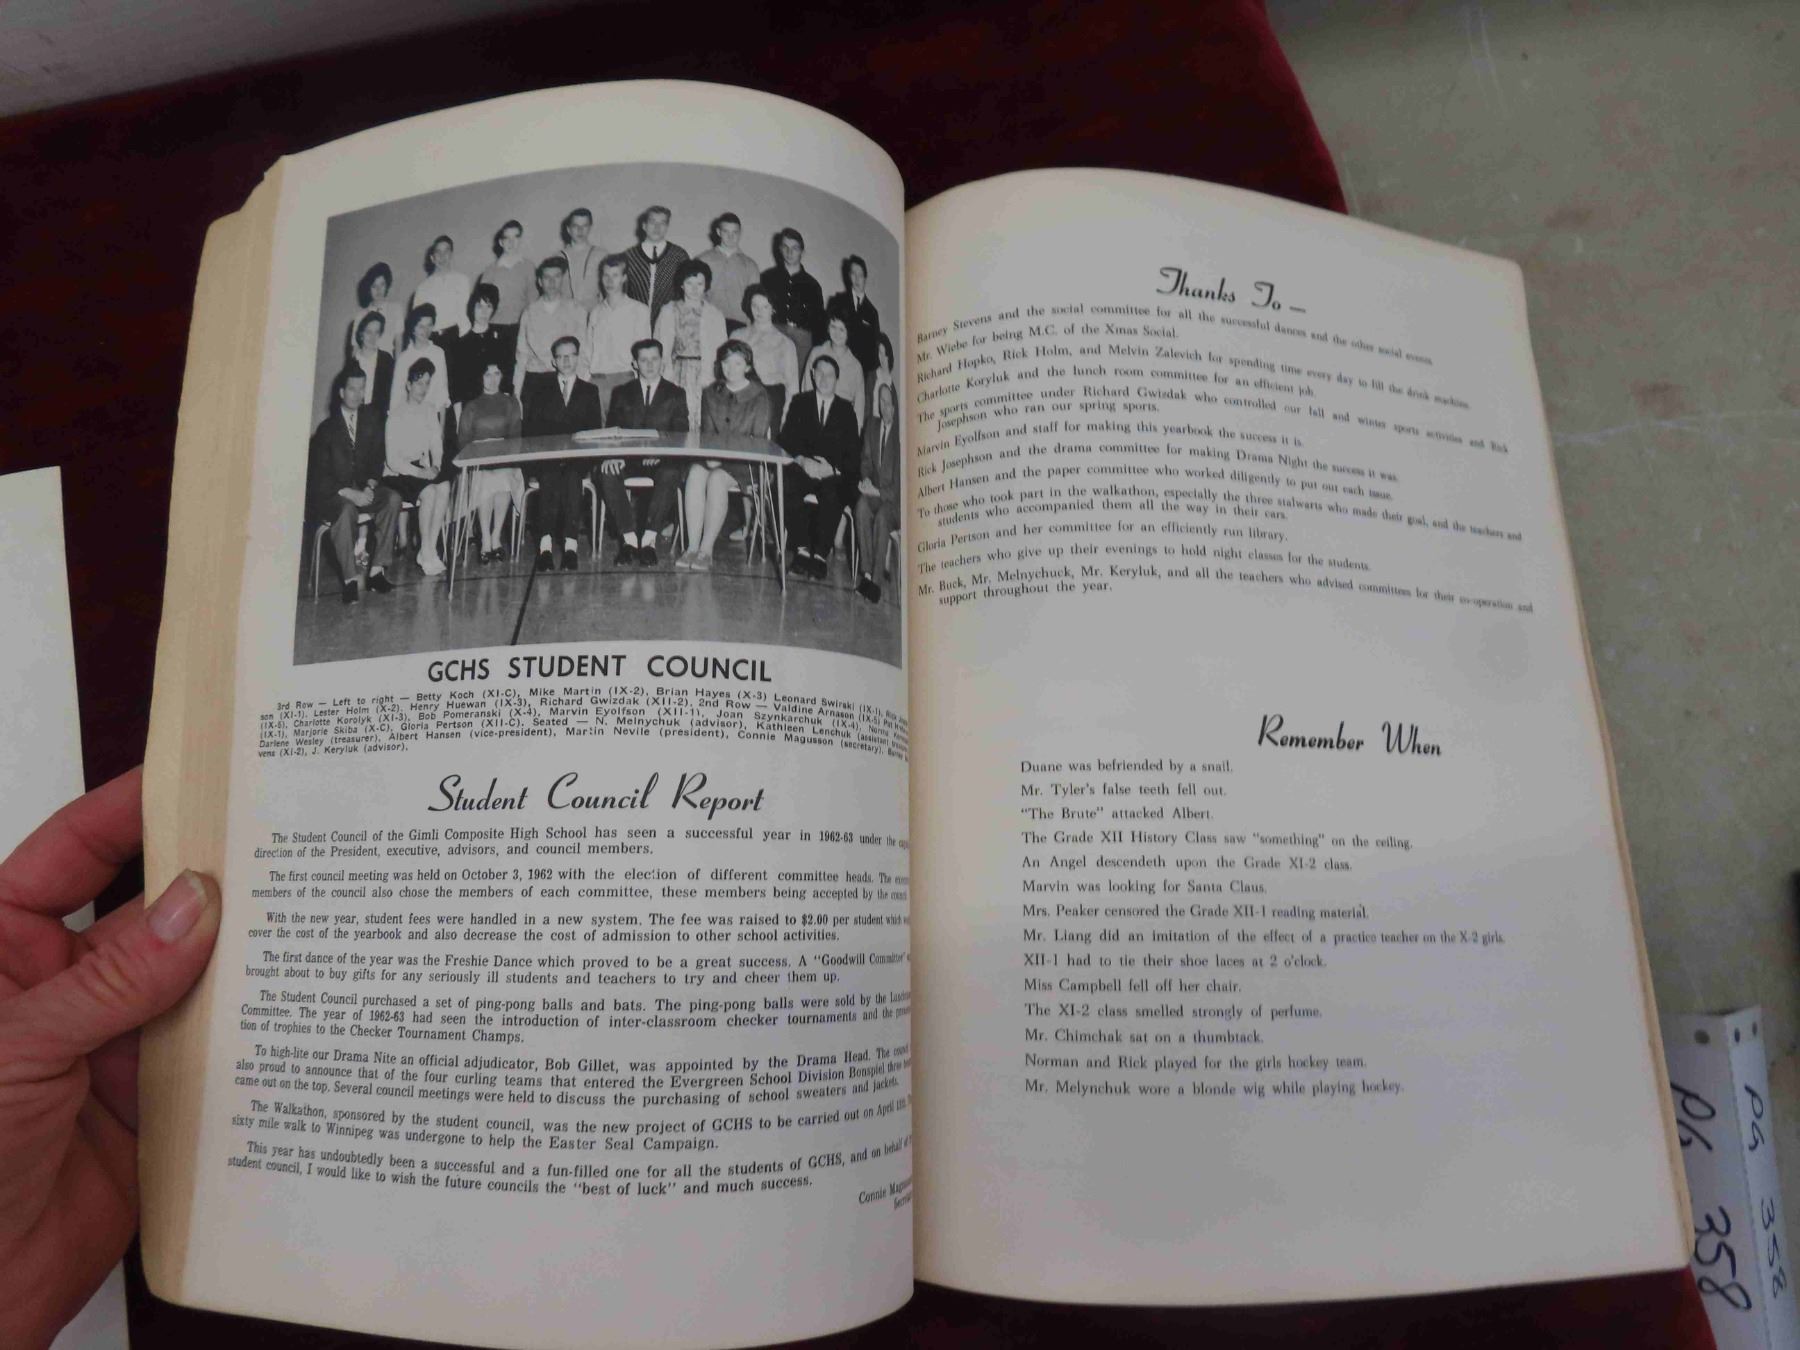 GCHS STUDENT COUNCIL
3rd Row — Left to right — Betty Koch (XI-C), Mike Martin (IX-2), Brian Hayes (X-3) Leonard Swirski (IX-1),
son (XI-1), Lester Holm (X-2), Henry Huewan (IX-3), Richard Gwizdak (XII-2). 2nd Row — Valdine Arnason (IX-5)
(IX-5), Charlotte Korolyk (XI-3), Bob Pomeranski (X-4), Marvin Eyolfson (XII-1), Joan Szynkarchuk (IX-4),
(IX-1), Marjorie Skiba (X-C), Gloria Pertson (XII-C). Seated — N. Melnychuk (advisor), Kathleen Lenchuk (assistant
Darlene Wesley (treasurer), Albert Hansen (vice-president), Martin Nevile (president), Connie Magusson (secretary),
vens (XI-2), J. Keryluk (advisor).
Student Council Report
The Student Council of the Gimli Composite High School has seen a successful year in 1962-63 under the
direction of the President, executive, advisors, and council members.
The first council meeting was held on October 3, 1962 with the election of different committee heads. The
members of the council also chose the members of each committee, these members being accepted by the
With the new year, student fees were handled in a new system. The fee was raised to $2.00 per student which
cover the cost of the yearbook and also decrease the cost of admission to other school activities.
The first dance of the year was the Freshie Dance which proved to be a great success. A "Goodwill Committee"
brought about to buy gifts for any seriously ill students and teachers to try and cheer them up.
The Student Council purchased a set of ping-pong balls and bats. The ping-pong balls were sold by the
Committee. The year of 1962-63 had seen the introduction of inter-classroom checker tournaments and the
tion of trophies to the Checker Tournament Champs.
To high-lite our Drama Nite an official adjudicator, Bob Gillet, was appointed by the Drama Head. The
also proud to announce that of the four curling teams that entered the Evergreen School Division Bonspiel three
came out on the top. Several council meetings were held to discuss the purchasing of school sweaters and jackets.
The Walkathon, sponsored by the student council, was the new project of GCHS to be carried out on April
sixty mile walk to Winnipeg was undergone to help the Easter Seal Campaign.
This year has undoubtedly been a successful and a fun-filled one for all the students of GCHS, and on behalf of
student council, I would like to wish the future councils the "best of luck" and much success.
Connie
Thanks To —
Barney Stevens and the social committee for all the successful dances and the other social events.
Mr. Wiebe for being M.C. of the Xmas Social.
Richard Hopko, Rick Holm, and Melvin Zalevich for spending time every day to fill the drink machine.
Charlotte Koryluk and the lunch room committee for an efficient job.
The sports committee under Richard Gwizdak who controlled our fall and winter sports activities and Rick
Josephson who ran our spring sports.
Marvin Eyolfson and staff for making this yearbook the success it is.
Rick Josephson and the drama committee for making Drama Night the success it was.
Albert Hansen and the paper committee who worked diligently to put out each issue.
To those who took part in the walkathon, especially the three stalwarts who made their goal, and the teachers and
students who accompanied them all the way in their cars.
Gloria Pertson and her committee for an efficiently run library.
The teachers who give up their evenings to hold night classes for the students.
Mr. Buck, Mr. Melnychuck, Mr. Keryluk, and all the teachers who advised committees for their co-operation and
support throughout the year.
Remember When
Duane was befriended by a snail.
Mr. Tyler's false teeth fell out.
"The Brute" attacked Albert.
The Grade XII History Class saw "something" on the ceiling.
An Angel descendeth upon the Grade XI-2 class.
Marvin was looking for Santa Claus.
Mrs. Peaker censored the Grade XII-1 reading material.
Mr. Liang did an imitation of the effect of a practice teacher on the X-2 girls.
XII-1 had to tie their shoe laces at 2 o'clock.
Miss Campbell fell off her chair.
The XI-2 class smelled strongly of perfume.
Mr. Chimchak sat on a thumbtack.
Norman and Rick played for the girls hockey team.
Mr. Melynchuk wore a blonde wig while playing hockey.
PG 358
PG 358